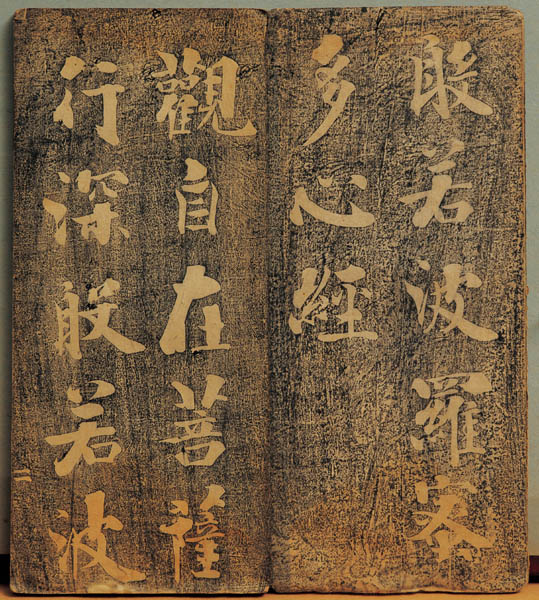 般若波羅蜜
多心經
觀自在菩薩
行深般若波
二